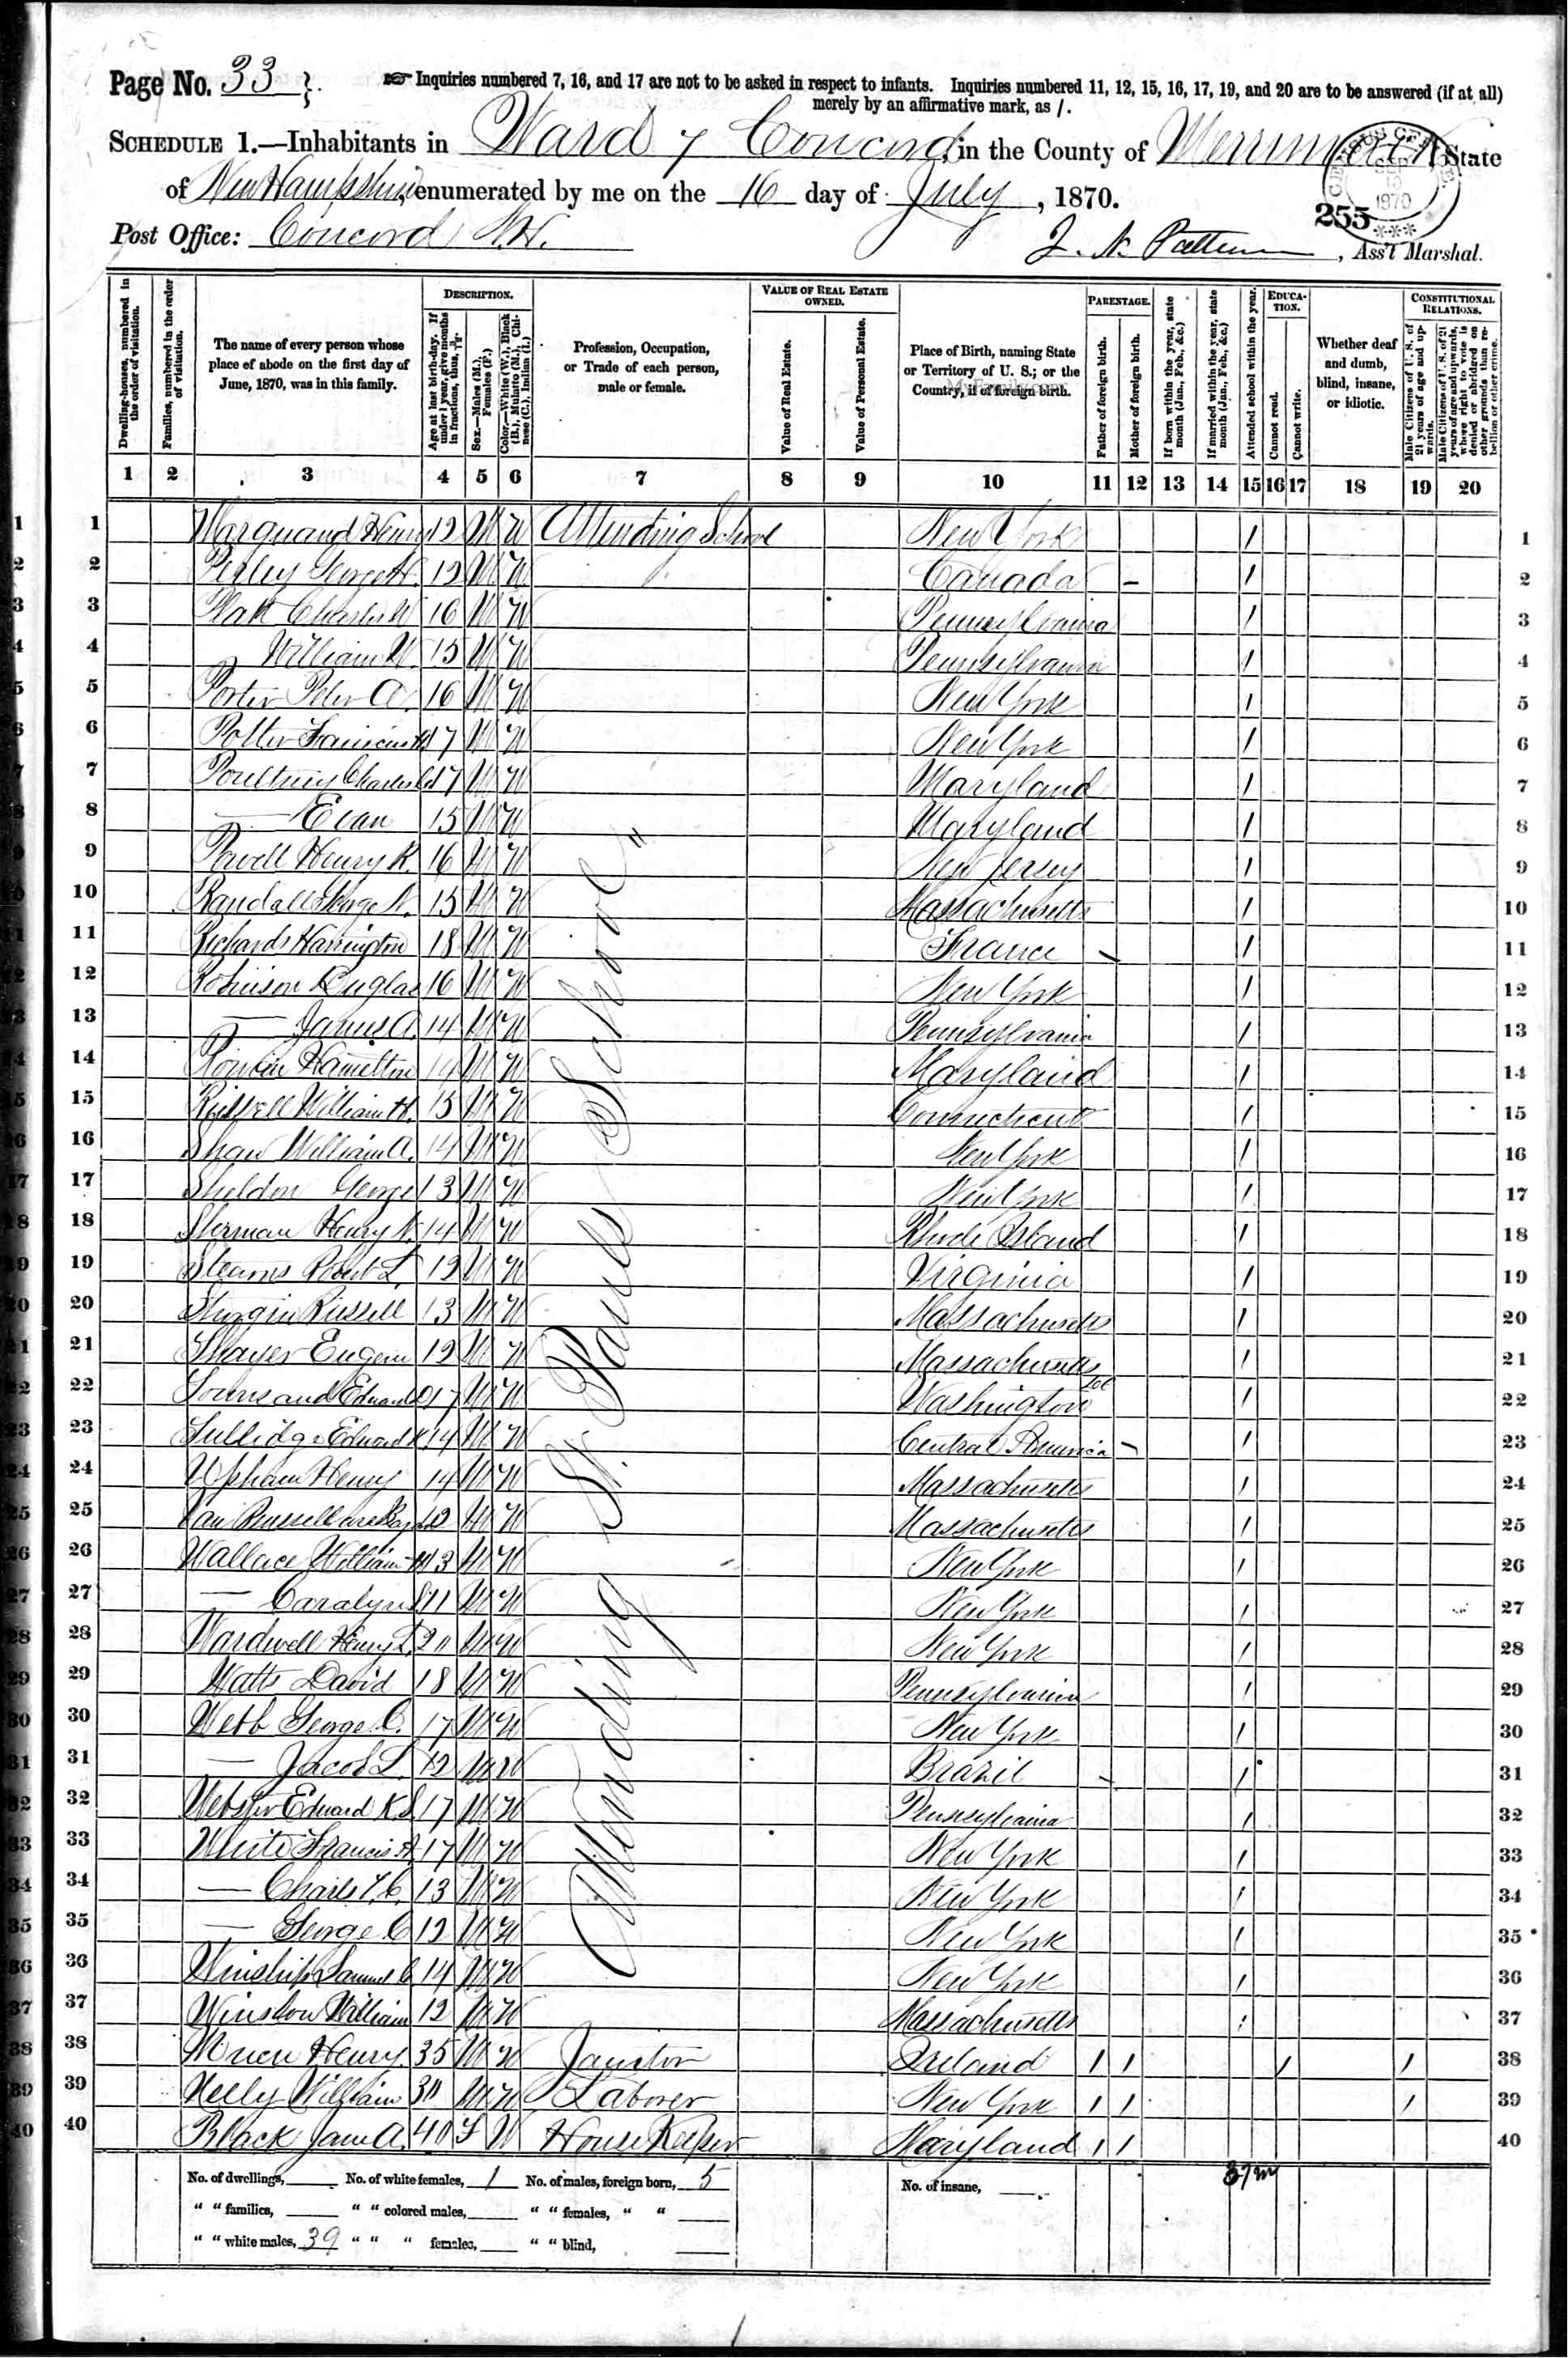 Page No. 33
Inquiries numbered 7, 16, and 17 are not to be asked in respect to infants. Inquiries numbered 11, 12, 15, 16, 17, 19, and 20 are to be answered (if at all)
merely by an affirmative mark, as /.
SCHEDULE 1.—Inhabitants in Ward 7 Concord, in the County of Merrimack, State
of New Hampshire, enumerated by me on the 16 day of July, 1870.
CENSUS OFFICE. SEP 1870
255
Post Office: Concord N.H.
J. N. Patterson, Ass't Marshal.
Dwelling-houses, numbered in the order of visitation.
Families, numbered in the order of visitation.
The name of every person whose place of abode on the first day of June, 1870, was in this family.
DESCRIPTION.
Age at last birth-day. If under 1 year, give months in fractions, thus, 3/12.
Sex.—Males (M.), Females (F.)
Color.—White (W.), Black (B.), Mulatto (M.), Chinese (C.), Indian (I.)
Profession, Occupation, or Trade of each person, male or female.
VALUE OF REAL ESTATE OWNED.
Value of Real Estate.
Value of Personal Estate.
Place of Birth, naming State or Territory of U. S.; or the Country, if of foreign birth.
MyFamily.com
PARENTAGE.
Father of foreign birth.
Mother of foreign birth.
If born within the year, state month (Jan., Feb., &c.)
If married within the year, state month (Jan., Feb., &c.)
Attended school within the year.
EDUCATION.
Cannot read.
Cannot write.
Whether deaf and dumb, blind, insane, or idiotic.
CONSTITUTIONAL RELATIONS.
Male Citizens of U. S. of 21 years of age and upwards.
Male Citizens of U. S. of 21 years of age and upwards, where right to vote is denied or abridged on other grounds than rebellion or other crime.
1 2 3 4 5 6 7 8 9 10 11 12 13 14 15 16 17 18 19 20
1 Marquand Henry 12 M W Attending School New York / 1
2 Perley George H. 12 M W Canada – / 2
3 Platt Charles 16 M W Pennsylvania / 3
4 William W. 15 M W Pennsylvania / 4
5 Porter Peter A. 16 M W New York / 5
6 Potter Francis H. 17 M W New York / 6
7 Poultney Charles 17 M W Maryland / 7
8 — Evan 15 M W Maryland / 8
9 Powell Henry K. 16 M W New Jersey / 9
10 Randall George N. 15 M W Massachusetts / 10
11 Richards Harrington 18 M W France \ / 11
12 Robinson Duglas 16 M W New York / 12
13 — James A. 14 M W Pennsylvania / 13
14 Hamelton 14 M W Maryland / 14
15 Russell William H. 15 M W Connecticut / 15
16 Shaw William A. 14 M W New York / 16
17 Sheldon George 13 M W New York / 17
18 Sherman Henry N. 14 M W Rhode Island / 18
19 Stearns Robert L. 12 M W Virginia / 19
20 Sturgin Russell 13 M W Massachusetts / 20
21 Thayer Eugene 12 M W Massachusetts / 21
22 Townsand Edward 17 M W Washington / 22
23 Tullidge Edward K 14 M W Central America – / 23
24 Upham Henry 14 M W Massachusetts / 24
25 Van Rensellaer 12 M W Massachusetts / 25
26 Wallace William 13 M W New York / 26
27 — Caralyn 11 M W New York / 27
28 Wardwell Henry L. 20 M W New York / 28
29 Watts David 18 M W Pennsylvania / 29
30 Webb George C. 17 M W New York / 30
31 — Jacob L. 12 M W Brazil \ / 31
32 Webster Edward K. S. 17 M W Pennsylvania / 32
33 White Francis A. 17 M W New York / 33
34 — Charls T. C. 13 M W New York / 34
35 — George C 12 M W New York / 35
36 Winship Samuel C 14 M W New York / 36
37 Winslow William 12 M W Massachusetts / 37
Attending St. Pauls School "
38 Henry 35 M W Janitor Ireland / / / / 38
39 Kelly William 30 M W Laborer New York / / / 39
40 Black Jane A. 40 F W House Keeper Maryland / / 40
No. of dwellings, No. of white females, 1 No. of males, foreign born, 5 No. of insane, 37 m
" " families, " " colored males, " " females, " "
" " white males, 39 " " " females, " " blind,